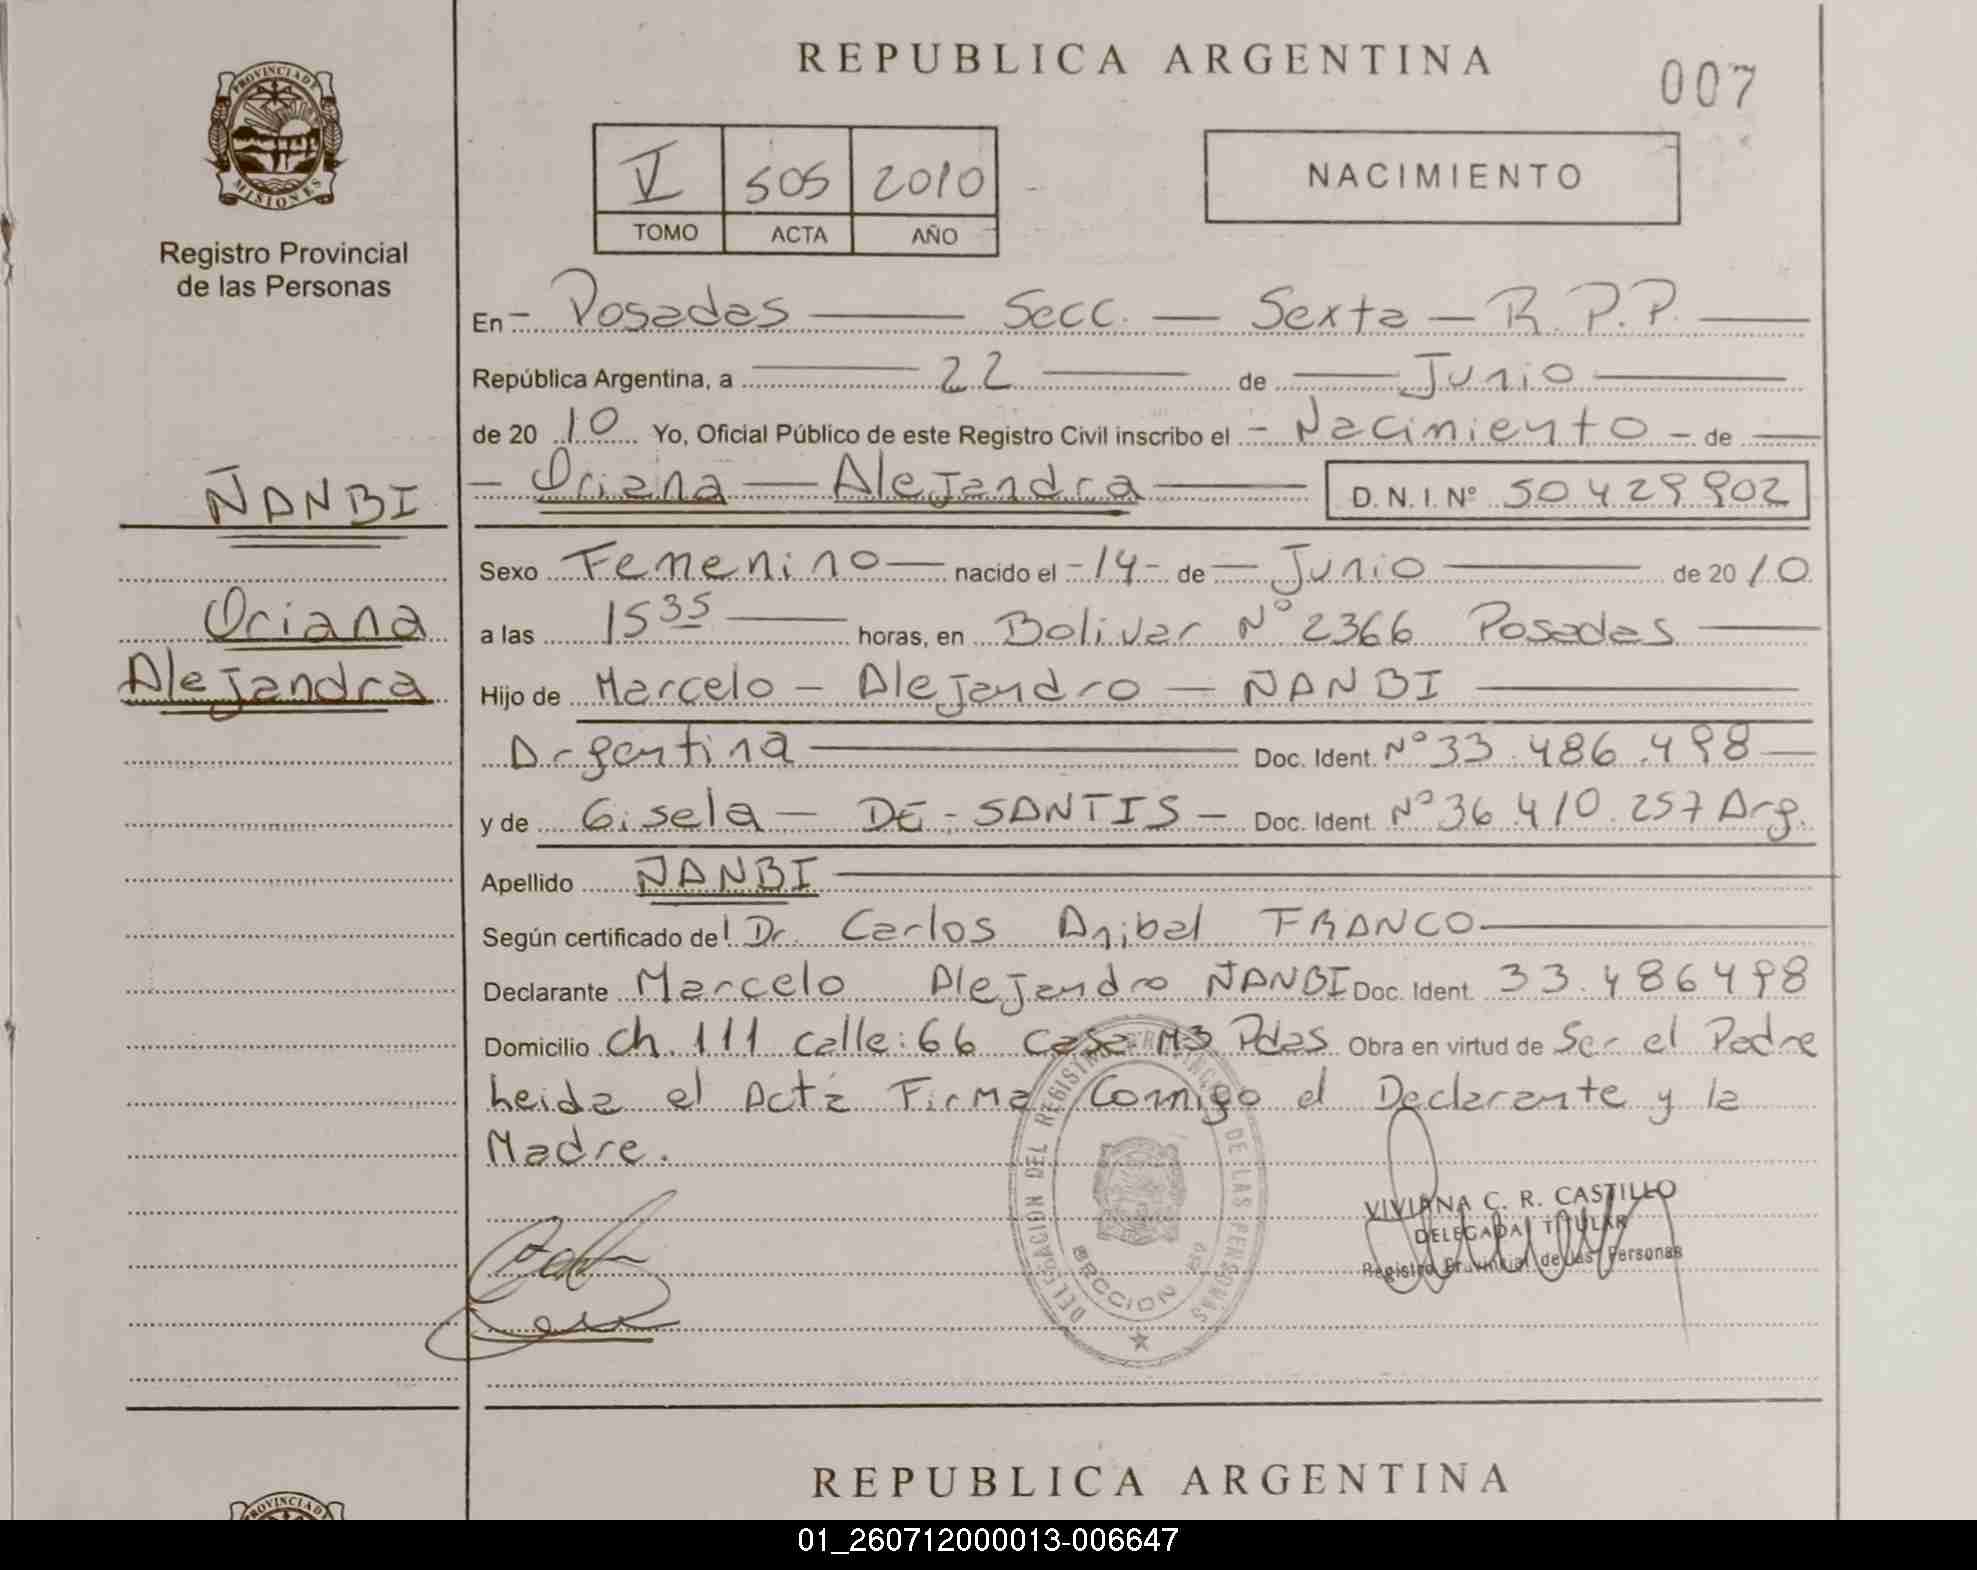 REPUBLICA ARGENTINA
007
PROVINCIA D
MISIONES
Registro Provincial
de las Personas
V 505 2010
TOMO ACTA AÑO
NACIMIENTO
En - Posadas — Secc. — Sexta — R.P.P. —
República Argentina, a — 22 — de — Junio —
de 20 10 Yo, Oficial Público de este Registro Civil inscribo el - Nacimiento - de —
- Oriana — Alejandra — D. N. I. Nº 50.429.902
ÑANBI
Oriana
Alejandra
Sexo Femenino — nacido el - 14 - de — Junio — de 20 10
a las 15 35 — horas, en Bolivar Nº 2366 Posadas —
Hijo de Marcelo — Alejandro — ÑANBI —
Argentina — Doc. Ident. Nº 33.486.498 —
y de Gisela — DE - SANTIS — Doc. Ident. Nº 36.410.257 Arg.
Apellido ÑANBI —
Según certificado del Dr. Carlos Anibal FRANCO —
Declarante Marcelo Alejandro ÑANBI Doc. Ident. 33.486498
Domicilio Ch. 111 calle: 66 casa M3 Pdas Obra en virtud de Ser el Padre
Leida el Acta Firma Conmigo el Declarante y la
Madre.
DELEGACION DEL REGISTRO PROVINCIAL DE LAS PERSONAS
VIVIANA C. R. CASTILLO
DELEGADA TITULAR
Registro Provincial de las Personas
REPUBLICA ARGENTINA
PROVINCIA D
01_260712000013-006647